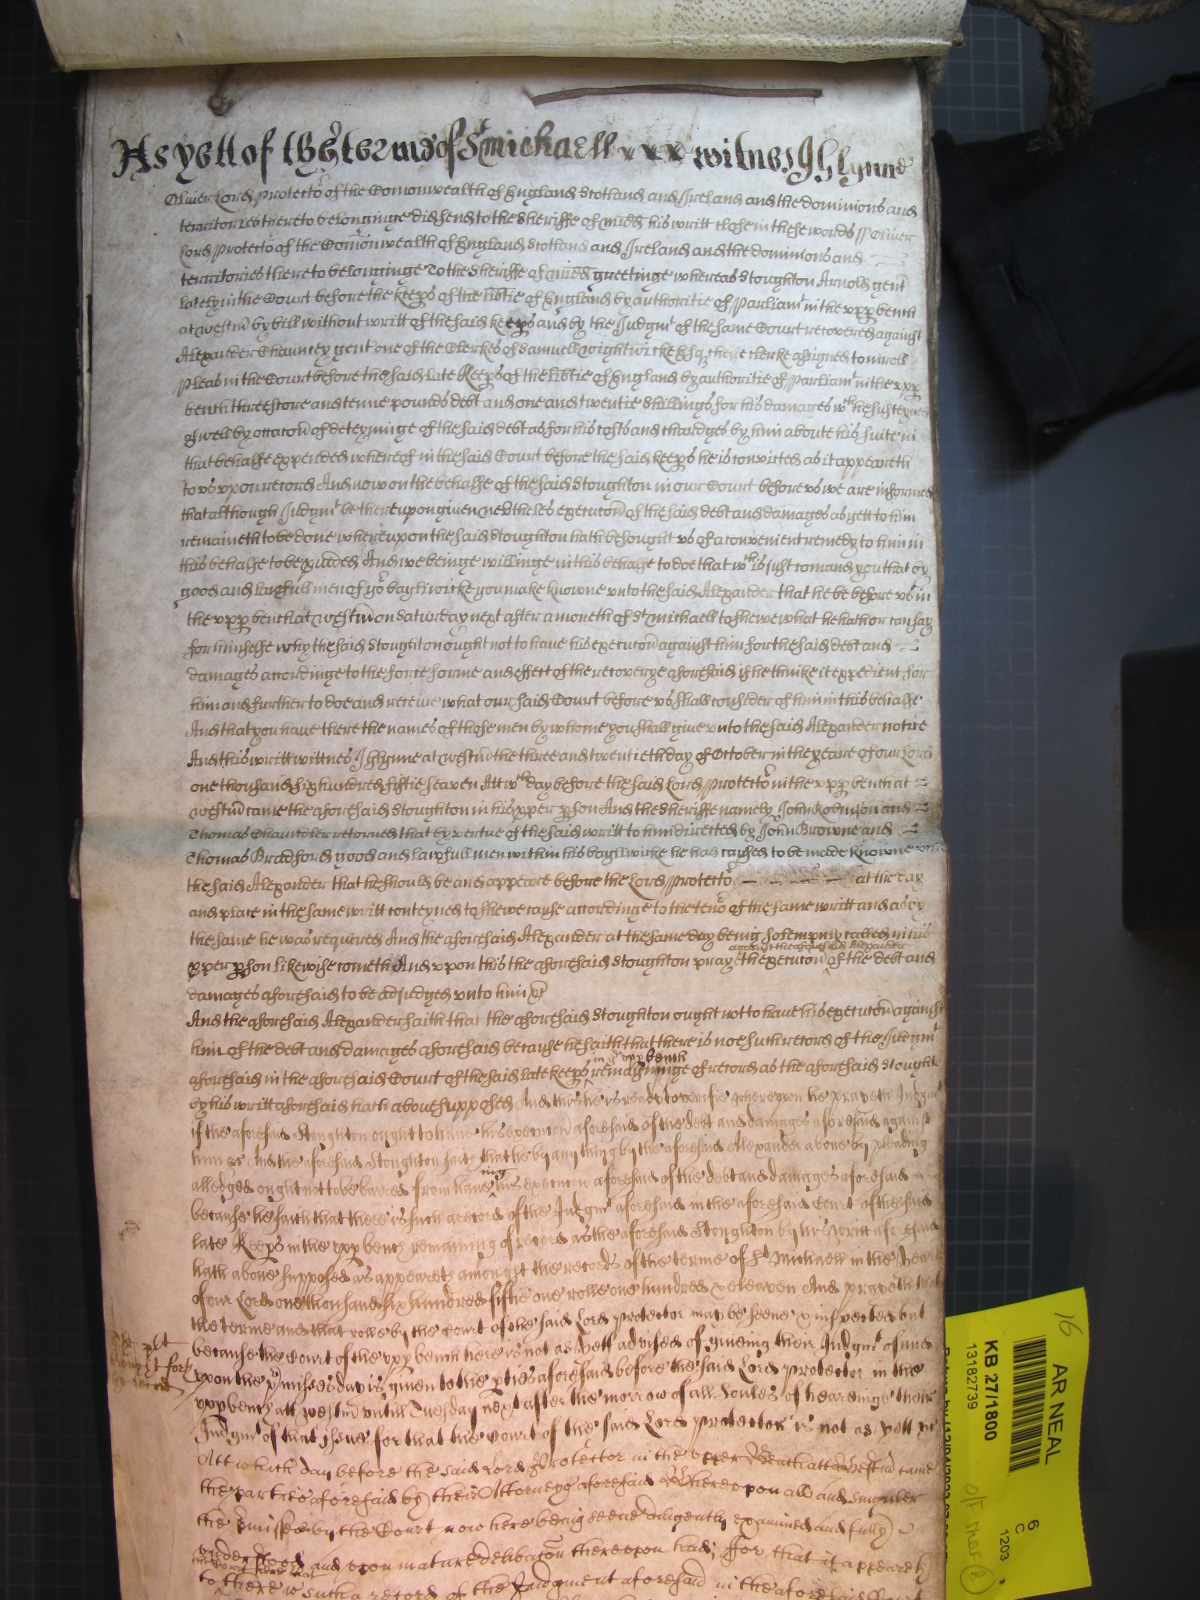 As yett of the terme of St Michaell xxx witnes J Glynne
Oliver Lord Protector of the Comonwealth of England Scotland and Ireland and the dominions and
territories thereto belonginge did send to the Sheriffe of Midd his writt close in these words ss Oliver
Lord Protector of the Comonwealth of England Scotland and Ireland and the dominions and
territories thereto belonginge To the Sheriffe of Midd greetinge whereas Stoughton Arnold gent
lately in the Court before the keeps of the libtie of England by authoritie of Parliamt in the vpp bench
at westm by bill without writt of the said keeps and by the Judgmt of the same Court recovered against
Alexander Chauncey gent one of the Clerkes of Samuell Wightwicke Esq cheife clerke assigned to inroll
pleas in the Court before the said late Keeps of the libtie of England by authoritie of Parliamt in the vpp
bench threescore and tenne pounds debt and one and twentie shillings for his damages wch he susteyned
aswell by occacon of deteyninge of the said debt as for his costs and chardges by him about his suite in
that behalfe expended whereof in the said Court before the said keeps he is convicted as it appeareth
to vs vpon record And now on the behalfe of the said Stoughton in our Court before vs we are informed
that although Judgmt be thereupon given neverthels execucon of the said debt and damages as yett to him
remaineth to be done whereupon the said Stoughton hath besought vs of a convenient remedy to him in
this behalfe to be pvided And we beinge willinge in this behalfe to doe that wch is just comand you that by
good and lawfull men of yor bayliwicke you make knowne vnto the said Alexander that he be before vs in
the vpp bench at westm on Saturday next after a moneth of St Michaell to shewe what he hath or can say
for himselfe why the said Stoughton ought not to have his execucon against him for the said debt and
damages accordinge to the force forme and effect of the recoverye aforesaid if he thinke it expedient for
him and further to doe and receive what our said Court before vs shall consider of him in this behalfe
And that you have there the names of those men by whome you shall give vnto the said Alexander notice
And this writt wittnes J Glynne at westm the three and twentieth day of October in the yeare of our Lord
one thousand six hundred fiftie seaven Att wch day before the said Lord Protector in the vpp bench at
westm came the aforesaid Stoughton in his pper pson And the sheriffe namely John Robinson and
Thomas Chaundler returned that by vertue of the said writt to him directed by John Browne and
Thomas Bradford good and lawfull men within his bayliwicke he has caused to be made knowne vnto
the said Alexander that he should be and appeare before the Lord Protector at the day
and place in the same writt conteyned to shewe cause accordinge to the tenor of the same writt and as by
the same he was required And the aforesaid Alexander at the same day being solempnly called in his
against the aforesaid Alexander
pper pson likewise cometh And vpon this the aforesaid Stoughton prayeth execucon of the debt and
damages aforesaid to be adjudged vnto him &c
And the aforesaid Alexander saith that the aforesaid Stoughton ought not to have his execucon against
him of the debt and damages aforesaid because he saith that there is noe such record of the Judgmt
in the vpp bench
aforesaid in the aforesaid Court of the said late keeps remayninge of record as the aforesaid Stoughton
by his writt aforesaid hath above supposed And this he is ready to verifie wherevpon he prayeth Judgmt
if the aforesaid Stoughton ought to have his execucon aforesaid of the debt and damages aforesaid against
him &c And the aforesaid Stoughton saith that he by any thing by the aforesaid Alexander above by pleading
ing
alledged ought not to be barred from have his execucon aforesaid of the debt and damages aforesaid
because he saith that there is such a record of the Judgmt aforesaid in the aforesaid Court of the said
late Keeps in the vpp bench remaining of record as the aforesaid Stoughton by his writt aforesaid
hath above supposed as appeareth amongst the records of the terme of St Michaell in the yeare
of our Lord one thousand six hundred fiftie one rolle one hundred & eleaven And prayeth that
the terme and that rolle by the Court of the said Lord Protector may be seene & inspected but
because the Court of the vpp bench here is not as yett advised of giueing their Judgmt of and
vpon the pmisses day is given to the pties aforesaid before the said Lord Protector in the
vpp bench att westm vntill Tuesday next after the morrow of all Soules of heareinge their
Judgmt of that issue for that the Court of the said Lord Protector is not as yett &c
Att which day before the said Lord Protector in the vpper Bench att Westm came
the parties aforesaid by their Attorneys aforesaid Wherevpon all and singuler
the pmisses by the Court now here being seene diligently examined and fully
vnderstood and vpon mature delibacon therevpon had; for that it appeareth
to the Court here that
there is such a record of the Judgment aforesaid in the aforesaid Court
AR NEAL
KB 27/1800
13182739
16
6
C
1203